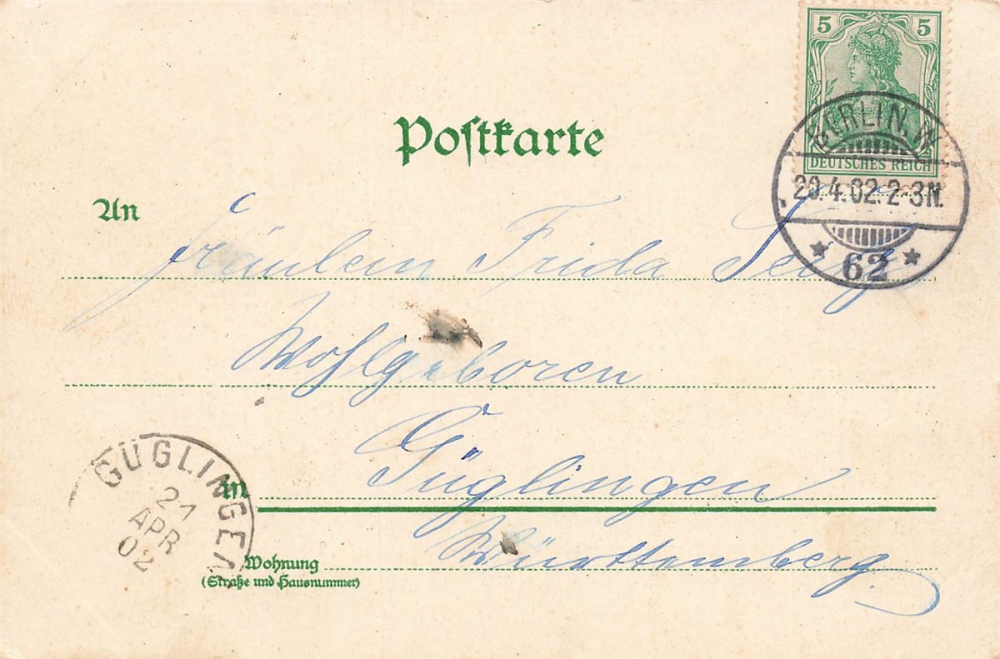 5 5
DEUTSCHES REICH
BERLIN. W.
20.4.02.2-3N.
* 62 *
Postkarte
An
Fräulein Frida
Wohlgeboren
in
Güglingen
Württemberg
Wohnung
(Straße und Hausnummer)
GÜGLINGEN
21
APR
02